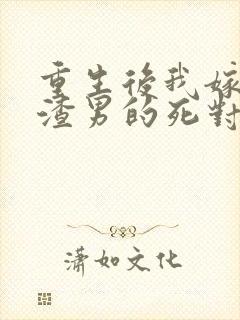 重生後我嫁
渣男的死對
瀟如文化